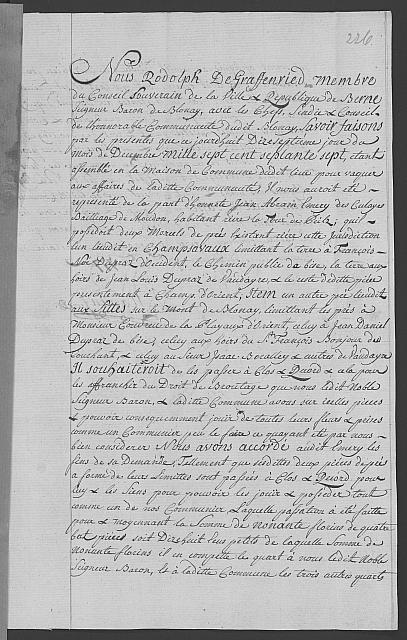 226.
Nous Rodolph DeGraffenried, Membre
du Conseil Souverain de la Ville & République de Berne
Seigneur Baron de Blonay, avec les Chefs, Sindic & Conseil
de l'honorable Communauté dudit Blonay, Savoir faisons
par les presentes que ce jourdhuit Dixseptieme jour du
mois de Decembre Mille sept cent septante sept, etant
assemblé en la Maison de Commune dudit lieu pour vaquer
aux affaires de laditte Communauté, Il nous auroit eté
representé de la part d'honnete Jean Abram Emery des Culayes
Bailliage de Moudon, habitant riere la Tour de Peilz; qu'il
possedoit deux Morcels de prés existant riere cette Jurisdiction
un lieudit en Champsavaux limittant la terre à François
Noé Dupraz d'occident, le Chemin public de bise, la terre aux
hoirs de Jean Louis Dupraz de Vaudayre, & le reste dedite piece
presentement à Champ. d'Orient, Item un autre pré lieudit
aux Sittes sur le Mont de Blonay, limittant les prés à
Monsieur Couvreu de la Playaux d'orient, celuy à Jean Daniel
Dupraz de bise, celuy aux hoirs du Sr. François Bonjour du
Couchant, & celuy au Sieur Isaac & autres de Vaudayre
Il souhaiteroit de les passer à Clos & Record & cela pour
les affranchir du Droit de Brottage que nous ledit Noble
Seigneur Baron, & laditte Commune avons sur icelles pieces
& pouvoir consequemment jouir de toutes leurs fleurs & prises
comme un Communier peu le faire ce qu'ayant eté par nous
bien considerer Nous avons accordé audit Emery les
fins de sa Demande, Tellement que susdittes deux pieces de prés
a forme de leurs Limittes sont passés à Clos & Record pour
luy & les siens pour pouvoir les jouir & posseder tout
comme un de nos Communier. Laquelle passation à eté faitte
pour & moyennant la Somme de nonante florins de quatre
bat pieces soit Dixhuit leus petits de laquelle Somme de
nonante florins il en compette le quart à nous ledit Noble
Seigneur Baron, & à laditte Commune les trois autres quarts